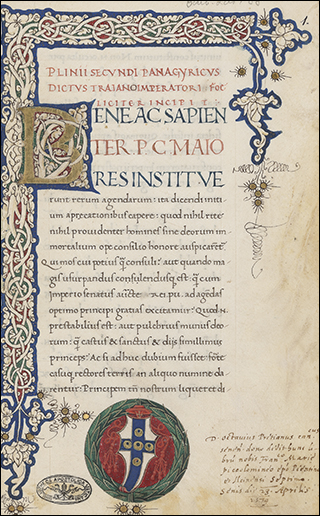 1.
PLINII SECVNDI PANAGYRICVS
DICTVS TRAIANO IMPERATORI FOE
LICITER INCIPIT
BENE AC SAPIEN
TER P. C. MAIO
RES INSTITVE
runt rerum agendarum: ita dicendi initi
um a precationibus capere: quod nihil rite
nihil providenter homines sine deorum im
mortalium ope consilio honore auspicarēt
Qui mos cui potius q̃ consuli: aut quando ma
gis usurpandus colendusq; est: q̃ cum
Imperio senatus aucte. rei. pu. ad agēdas
optimo principi gratias excitamur? Quod n̄
prestabilius est: aut pulchrius munus deo
rum: q̃ castus & sanctus & diis simillimus
princeps. Ac si adhuc dubium fuisset forte
casuq; rectores terris an aliquo numine da
rentur: Principem tn̄ nostrum liqueret di
D. octavius
dono dedit
Aprilis